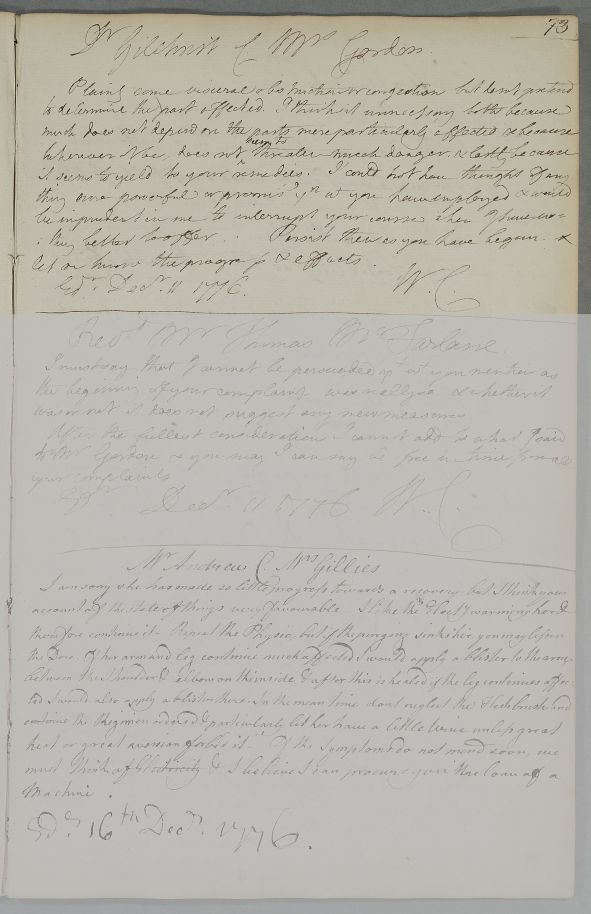 73
Dr Gilchrist C. Mrs Gordon.
Plainly some visceral obstruction or congestion but dont pretend
to determine the part affected. I think it unnecessary both because
much does not depend on the parts more particularly affected & because
wherever it be, does not seem to threaten much danger & lastly because
it seems to yield to your remedies. I could not have thought of any
thing more powerful or promising yn wt you have employed & would
be imprudent in me to interrupt your course when I have no=
:thing better to offer. Persist then as you have begun &
let me know the progress & effects.
Edr. Decr. 11 1776. W. C.
Revd. Mr Thomas McFarlane.
I must say that I cannot be persuaded yt wt you mention as
the beginning of your complaint was really so & whether it
was or not it does not suggest any new measures.
After the fullest consideration I cannot add to what I said
to Mr Gordon & you may I can say be free in time from all
your complaints
Edr. Decr. 11 1776 W. C.
Mr Andrew C. Mrs Gillies
I am sorry she has made so little progress towards a recovery but I think your
account of the state of things very favourable. I like the warming
therefore continue it. Repeat the Physic, but if the purging sinks her, you may lessen
the Dose. If her arm and leg continue much affected I would apply a blister to the arm
between the Shoulder & elbow on the inside & after this is healed if the leg continues affec-
ted I would also apply a blister there. In the mean time dont neglect the flesh brush and
continue the Regimen ordered & particularly let her have a little wine unless great
heat or great aversion forbid it. If the symptoms do not mend soon, we
must think of Electricity & I believe I can procure you the loan of a
Machine.
Edr. 16th Decr. 1776.